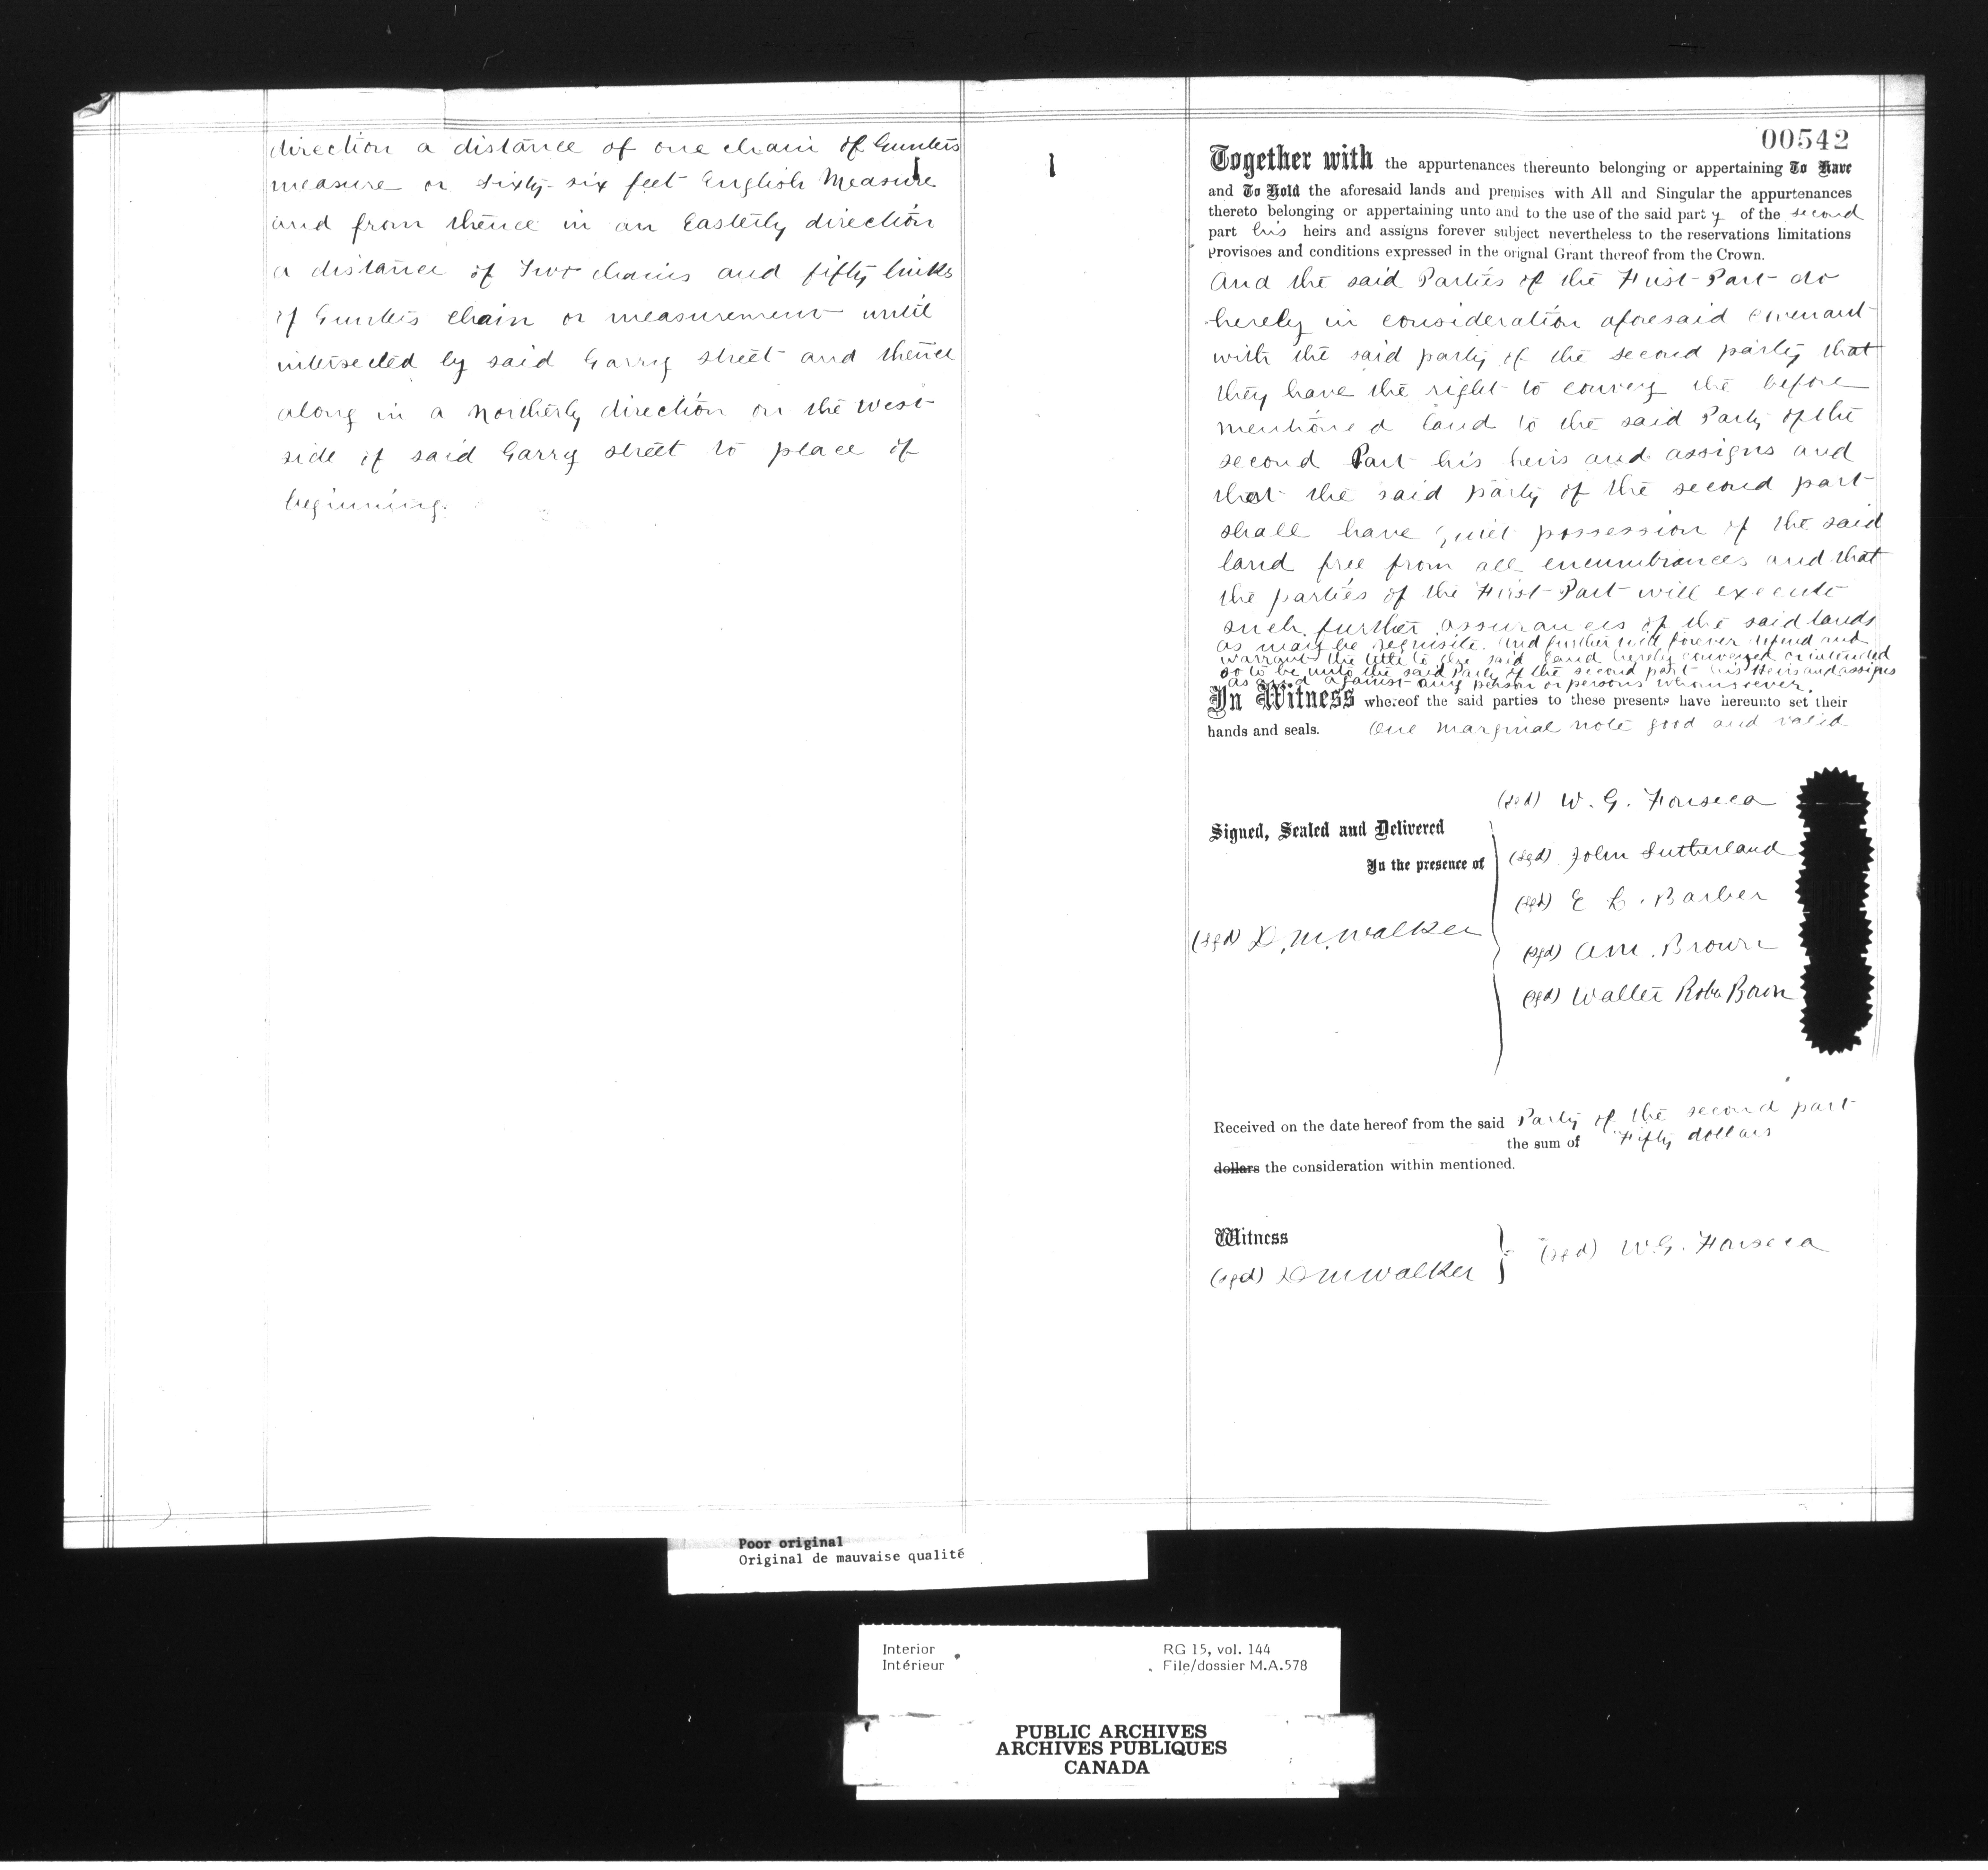 direction a distance of one chain of Gunters
measure or sixty-six feet English Measure
and from thence in an Easterly direction
a distance of Two chains and fifty links
of Gunters chain or measurement until
intersected by said Garry street and thence
along in a Northerly direction on the West
side of said Garry street to place of
beginning.
00542
Together with the appurtenances thereunto belonging or appertaining To Have
and To Hold the aforesaid lands and premises with All and Singular the appurtenances
thereto belonging or appertaining unto and to the use of the said party of the second
part his heirs and assigns forever subject nevertheless to the reservations limitations
provisoes and conditions expressed in the orignal Grant thereof from the Crown.
And the said Parties of the First Part do
hereby in consideration aforesaid covenant
with the said party of the second party that
they have the right to convey the before
mentioned land to the said Party of the
second Part his heirs and assigns and
that the said party of the second part
shall have quiet possession of the said
land free from all encumbrances and that
the parties of the First Part will execute
such further assurances of the said lands
as may be requisite. And further will forever defend and
warrant the title to the said land hereby conveyed or intended
so to be unto the said Party of the second part his Heirs and assigns
as and against any person or persons whomsoever.
In Witness whereof the said parties to these presents have hereunto set their
hands and seals. One marginal note good and valid
(sgd) W. G. Fonseca
Signed, Sealed and Delivered
In the presence of
(sgd) John Sutherland
(sgd) E L. Barber
(sgd) D. M. Walker
(sgd) A M. Brown
(sgd) Walter Robt Bown
Received on the date hereof from the said Party of the second part
the sum of Fifty dollars
dollars the consideration within mentioned.
Witness
(sgd) D M Walker
(sgd) W. G. Fonseca
Poor original
Original de mauvaise qualité
Interior
Intérieur
RG 15, vol. 144
File/dossier M.A.578
PUBLIC ARCHIVES
ARCHIVES PUBLIQUES
CANADA